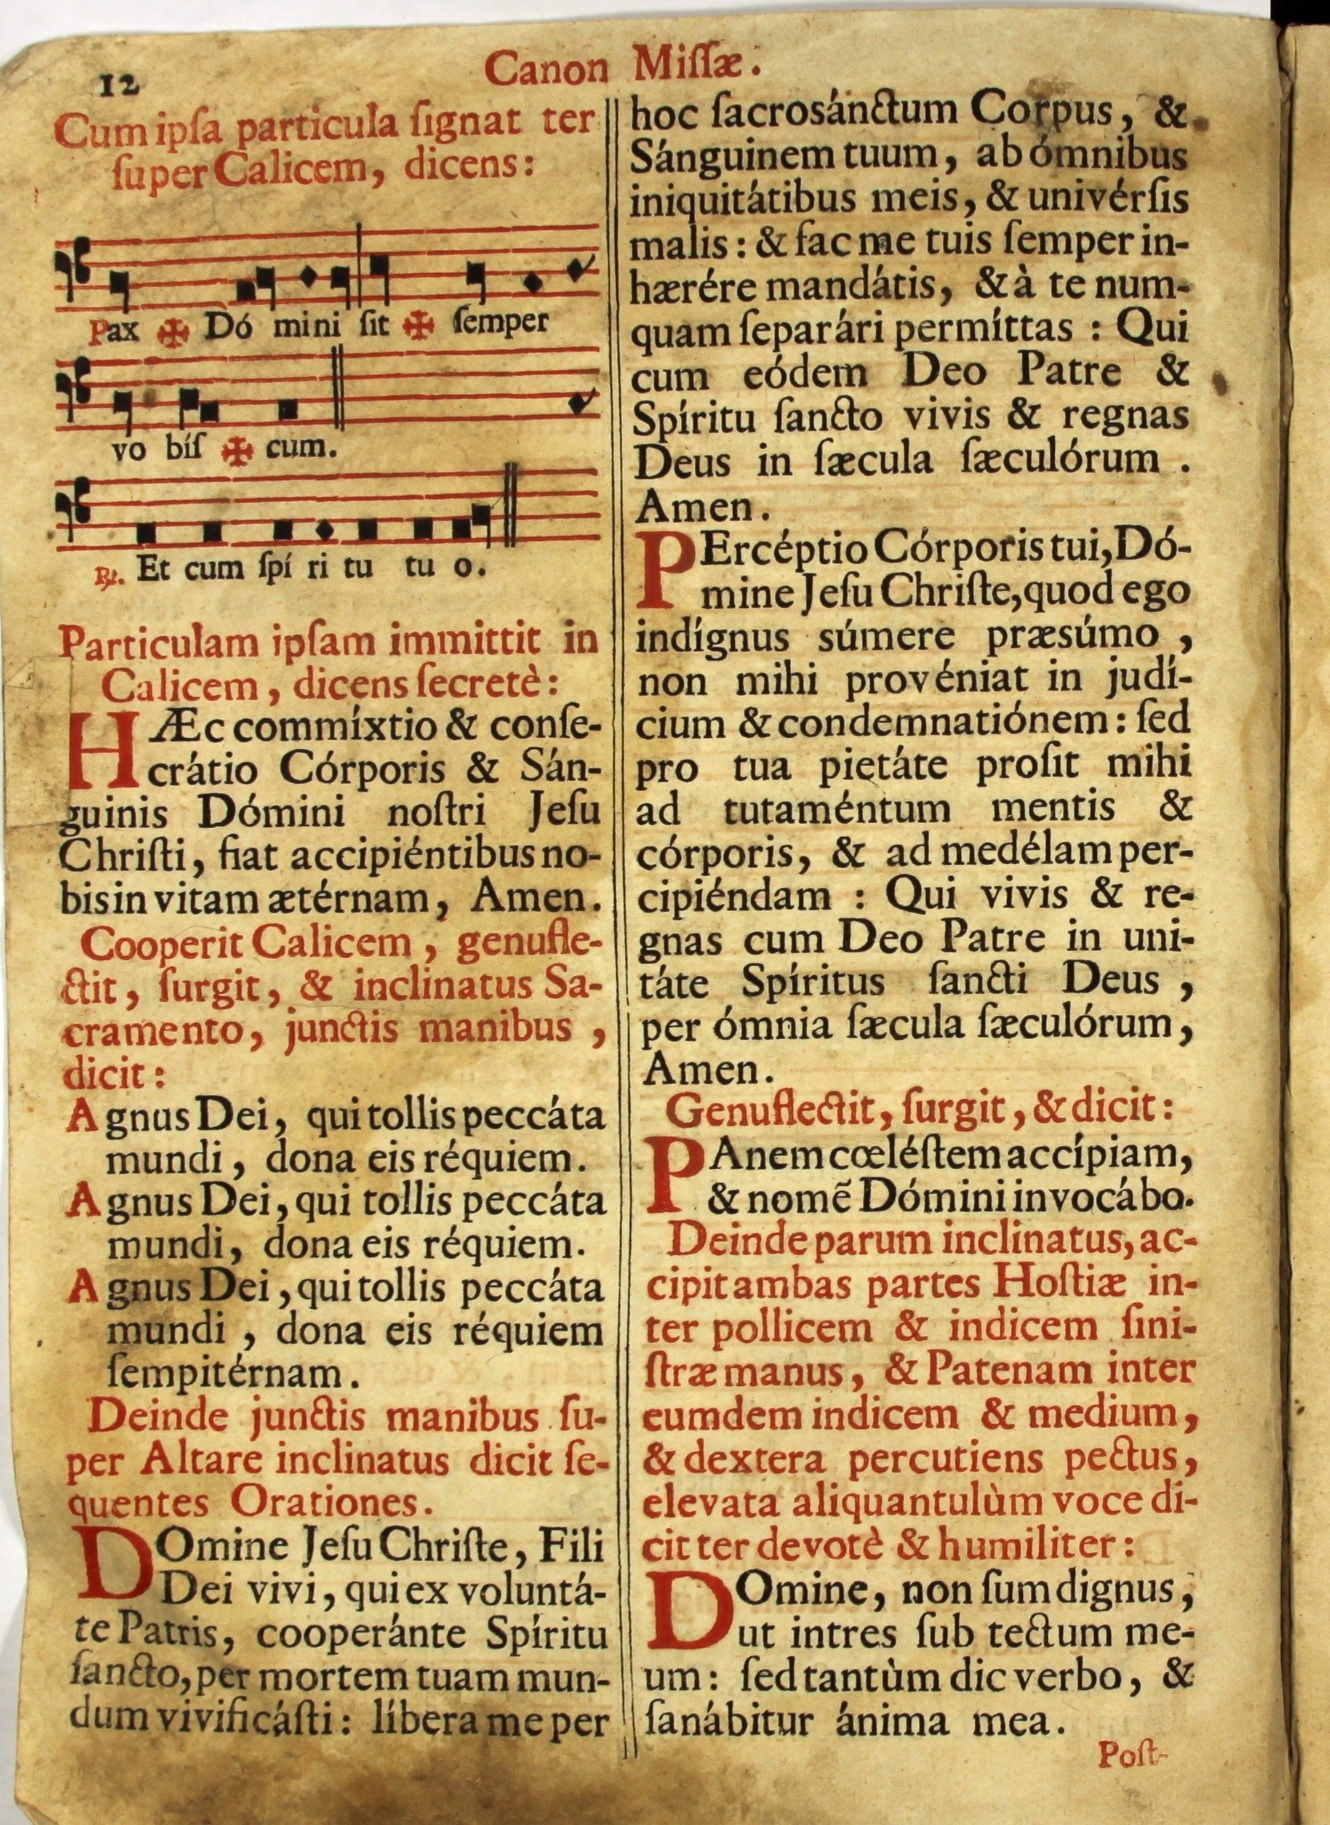 12
Canon Miſſæ.
Cum ipſa particula ſignat ter
ſuper Calicem, dicens:
Pax ✠ Dó mini ſit ✠ ſemper
vo biſ ✠ cum.
℟. Et cum ſpí ri tu tu o.
Particulam ipſam immittit in
Calicem, dicens ſecretè:
HÆc commíxtio & conſe-
crátio Córporis & Sán-
guinis Dómini noſtri Jeſu
Chriſti, fiat accipiéntibus no-
bis in vitam ætérnam, Amen.
Cooperit Calicem, genufle-
ctit, ſurgit, & inclinatus Sa-
cramento, junctis manibus,
dicit:
Agnus Dei, qui tollis peccáta
mundi, dona eis réquiem.
Agnus Dei, qui tollis peccáta
mundi, dona eis réquiem.
Agnus Dei, qui tollis peccáta
mundi, dona eis réquiem
ſempitérnam.
Deinde junctis manibus ſu-
per Altare inclinatus dicit ſe-
quentes Orationes.
DOmine Jeſu Chriſte, Fili
Dei vivi, qui ex voluntá-
te Patris, cooperánte Spíritu
ſancto, per mortem tuam mun-
dum vivificáſti: líbera me per
hoc ſacrosánctum Corpus, &
Sánguinem tuum, ab ómnibus
iniquitátibus meis, & univérſis
malis: & fac me tuis ſemper in-
hærére mandátis, & à te num-
quam ſeparári permíttas : Qui
cum eódem Deo Patre &
Spíritu ſancto vivis & regnas
Deus in ſæcula ſæculórum .
Amen.
PErcéptio Córporis tui, Dó-
mine Jeſu Chriſte, quod ego
indígnus súmere præsúmo ,
non mihi provéniat in judí-
cium & condemnatiónem: ſed
pro tua pietáte proſit mihi
ad tutaméntum mentis &
córporis, & ad medélam per-
cipiéndam : Qui vivis & re-
gnas cum Deo Patre in uni-
táte Spíritus ſancti Deus ,
per ómnia ſæcula ſæculórum,
Amen.
Genuflectit, ſurgit, & dicit:
PAnem cœléſtem accípiam,
& nomẽ Dómini invocábo.
Deinde parum inclinatus, ac-
cipit ambas partes Hoſtiæ in-
ter pollicem & indicem ſini-
ſtræ manus, & Patenam inter
eumdem indicem & medium,
& dextera percutiens pectus,
elevata aliquantulùm voce di-
cit ter devotè & humiliter:
DOmine, non ſum dignus,
ut intres ſub tectum me-
um: ſed tantùm dic verbo, &
ſanábitur ánima mea.
Poſt-